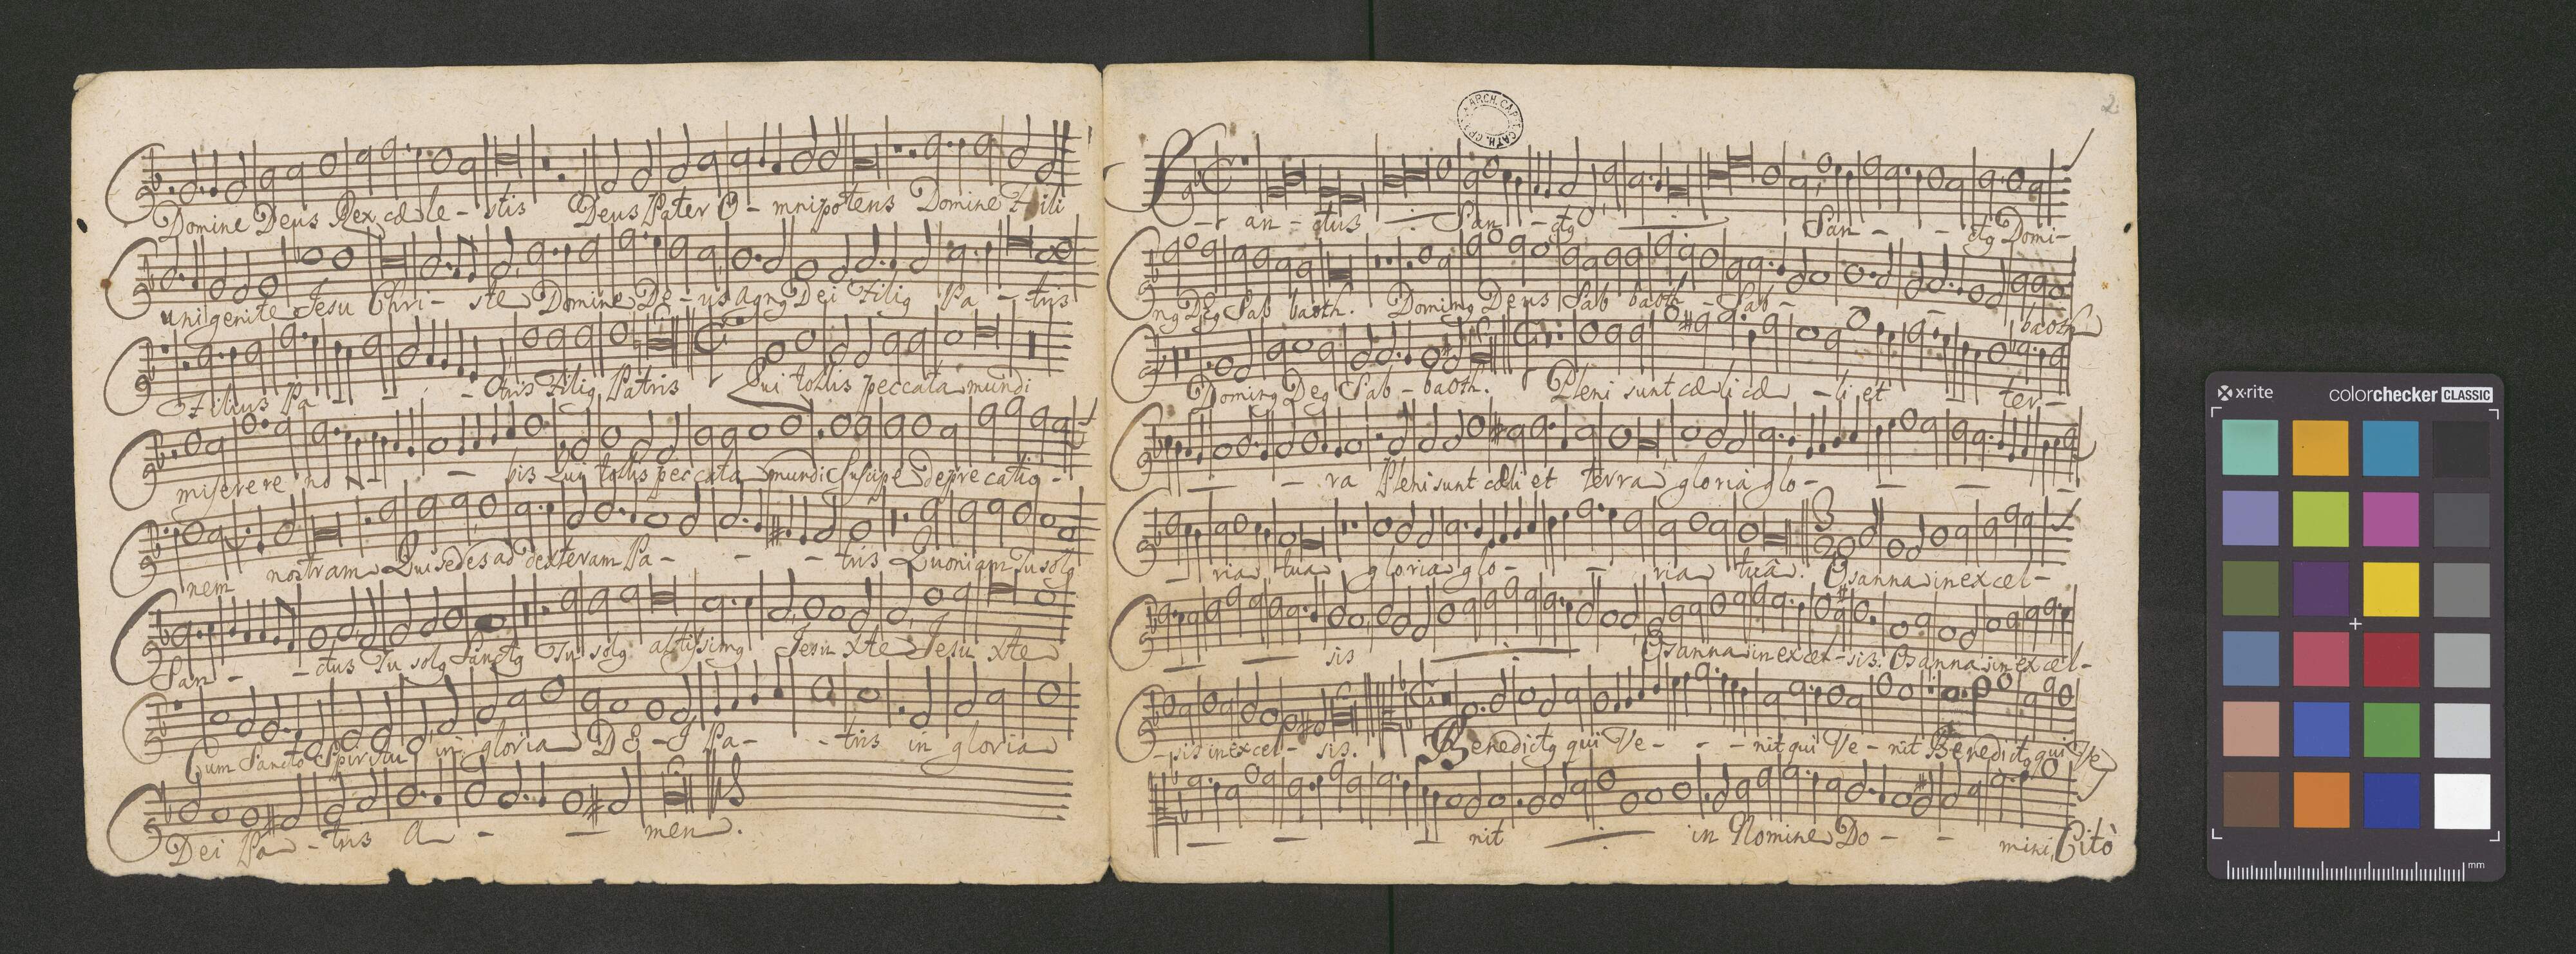 Domine Deus Rex cœle - stis Deus Pater O - mnipotens Domine Fili
unigenite Jesu Chri - ste Domine De - us Agng Dei Filig Pa - tris
Filius Pa - - - - tris Filig Patris Qui tollis peccata mundi
miserere no - - bis Qui tollis peccata mundi Suscipe deprecatio -
nem nostram Qui sedes ad dexteram Pa - - - tris Quoniam Tu solg
San - - ctus Tu solg Sanctg Tu solg altissimg Jesu Xte Jesu Xte
Cum Sancto Spiritu in gloria DE - I Pa - - tris in gloria
Dei Pa - tris A - - men.
2.
ARCH. CAP. CATH.
San - ctus San - ctg San - - ctg Domi -
ng Deg Sab baoth. Doming Deus Sab baoth - Sab - baoth
Doming Deg Sab - baoth. Pleni sunt cœli cœ - li et - ter -
- - ra Pleni sunt cœli et terra gloria glo - - - -
- ria tua gloria glo - - ria tuâ. Osanna in excel -
- - sis Osanna in excel - sis. Osanna in excel -
- sis in excel - sis. Benedictg qui Ve - - - nit qui Ve - nit Benedictg qui Ve
- - - nit in Nomine Do - - mini, Citò
x·rite colorchecker CLASSIC
mm